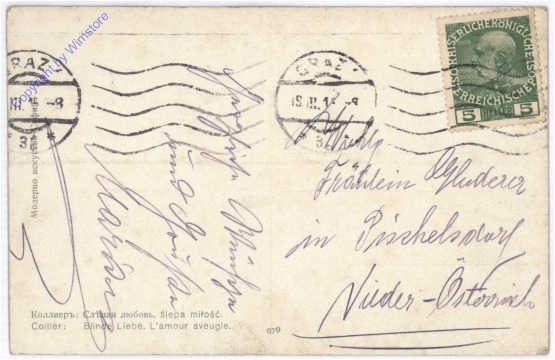 Copyright by Wimstore
GRAZ 1
III.15-8
3
GRAZ 1
19.III.15-8
3
KAISERLICHE KÖNIGLICHE
ÖSTERREICHISCHE
5 5
Herzliche Wünsche
und Grüße
Maria
Fräulein
in Pischelsdorf
Nieder-Österreich
Коллиеръ: Слѣпая любовь, ślepa miłość.
Collier: Blinde Liebe. L'amour aveugle.
070